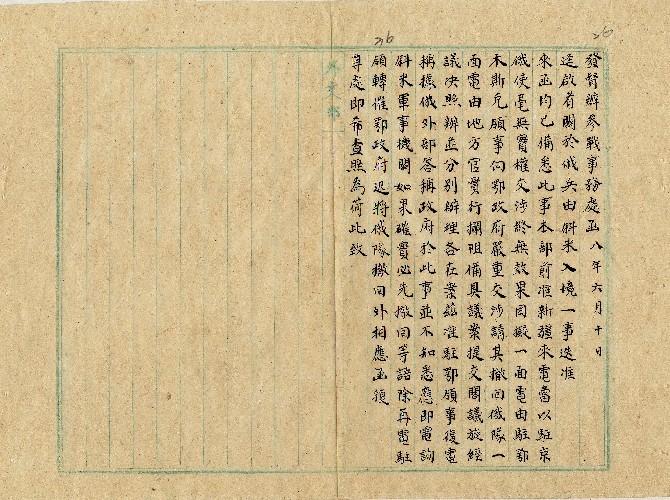 26
26
發督辦參戰事務處函八年六月十日
逕啟者關於俄兵由斜米入境一事迭准
來函均已備悉此事本部前准新疆來電當以駐京
俄使毫無實權交涉終無效果因擬一面電由駐鄂
木斯克領事向鄂政府嚴重交涉請其撤回俄隊一
面電由地方官實行攔阻備具議案提交閣議旋經
議决照辦並分別辦理各在案茲准駐鄂領事復電
稱據俄外部答稱政府於此事並不知悉應即電詢
斜米軍事機關如果確實必先撤回等語除再電駐
領轉催鄂政府迅將俄隊撤回外相應函復
等處即希查照為荷此致